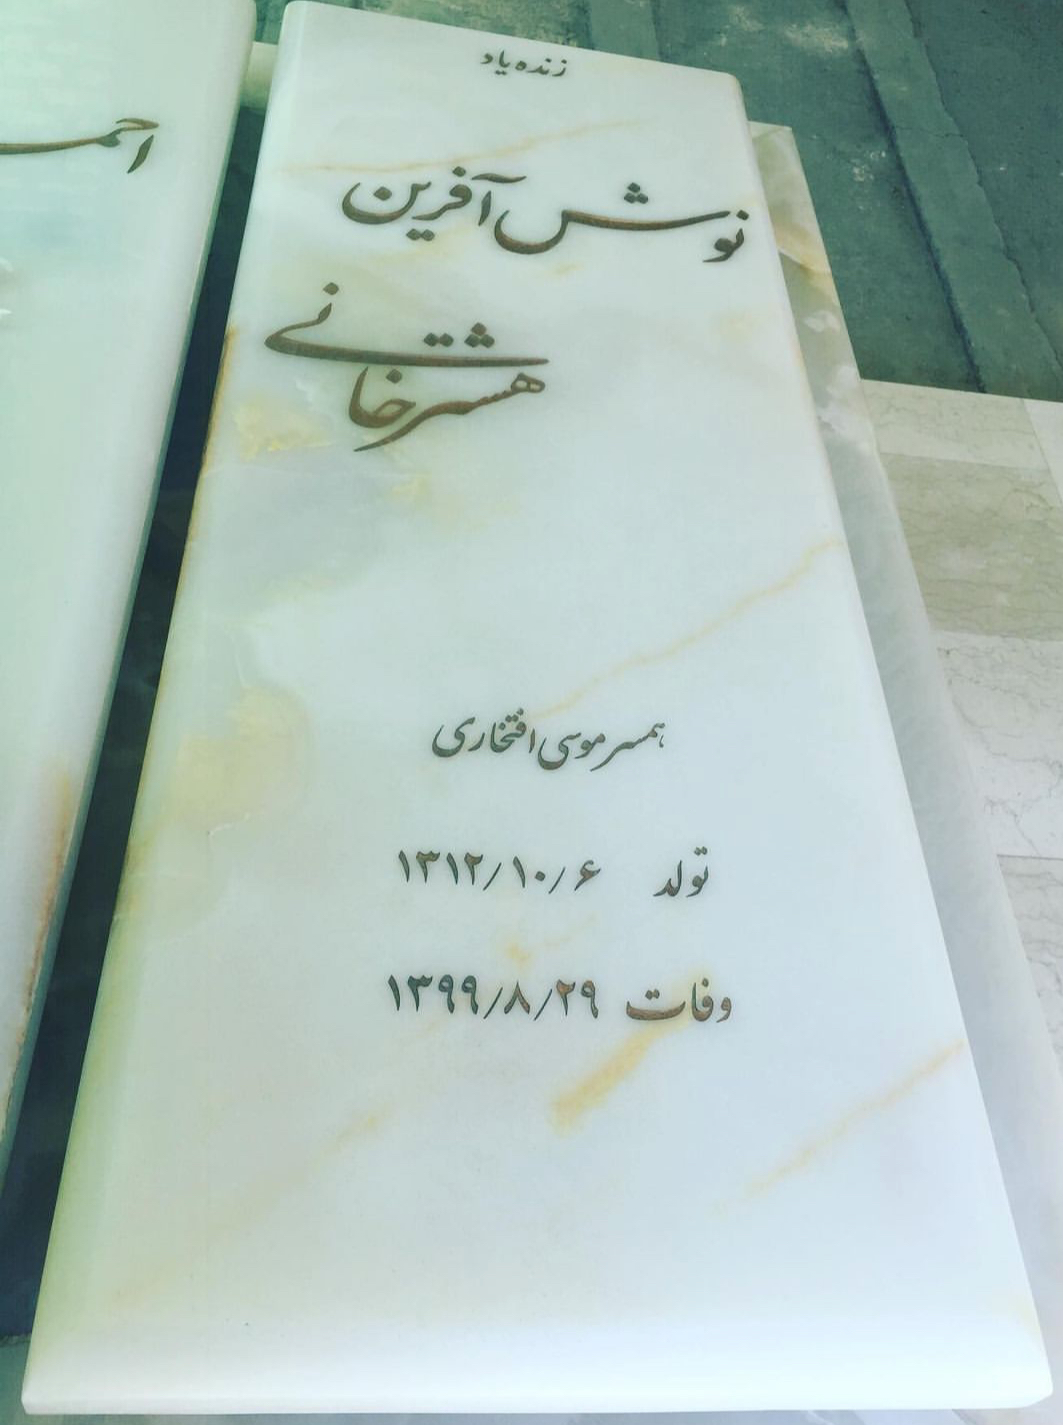 زنده یاد
نوش آفرین
هشترخانی
همسر موسی افتخاری
تولد ۱۳۱۲/۱۰/۶
وفات ۱۳۹۹/۸/۲۹